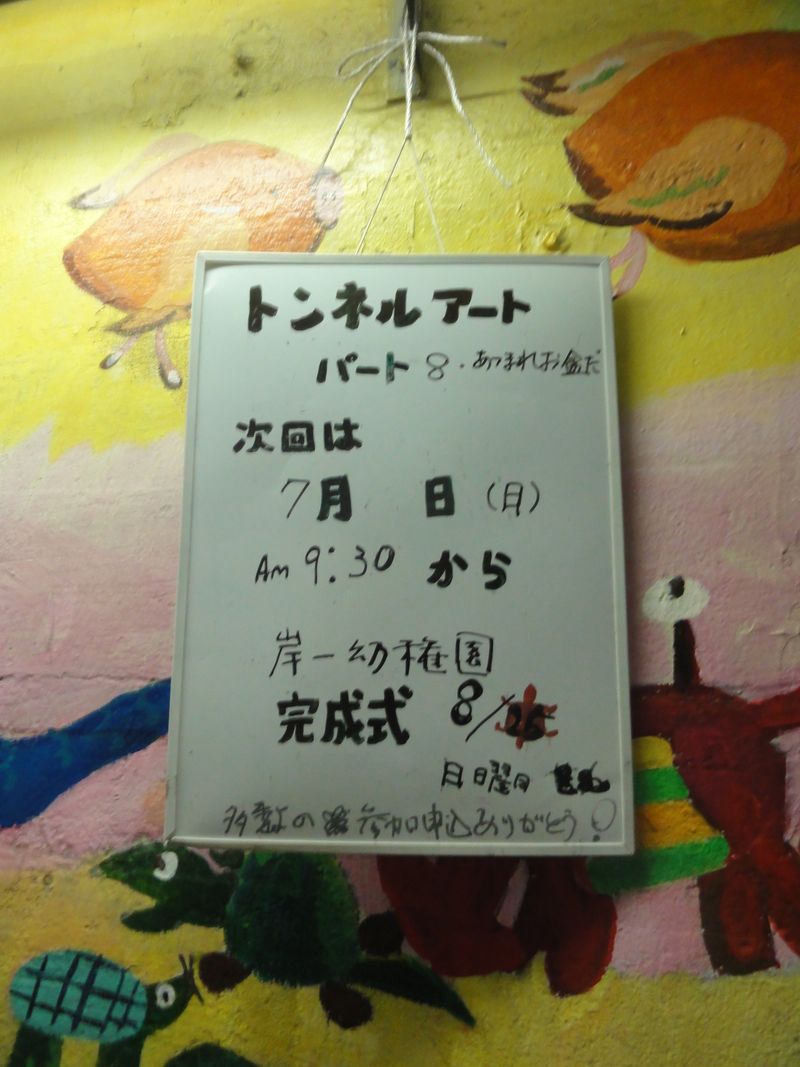 トンネルアート
パート 8・あつまれお金だ
次回は
7月 日(日)
Am 9:30 から
岸一幼稚園
完成式 8/25
日曜日
多数の 参加申込ありがとう!